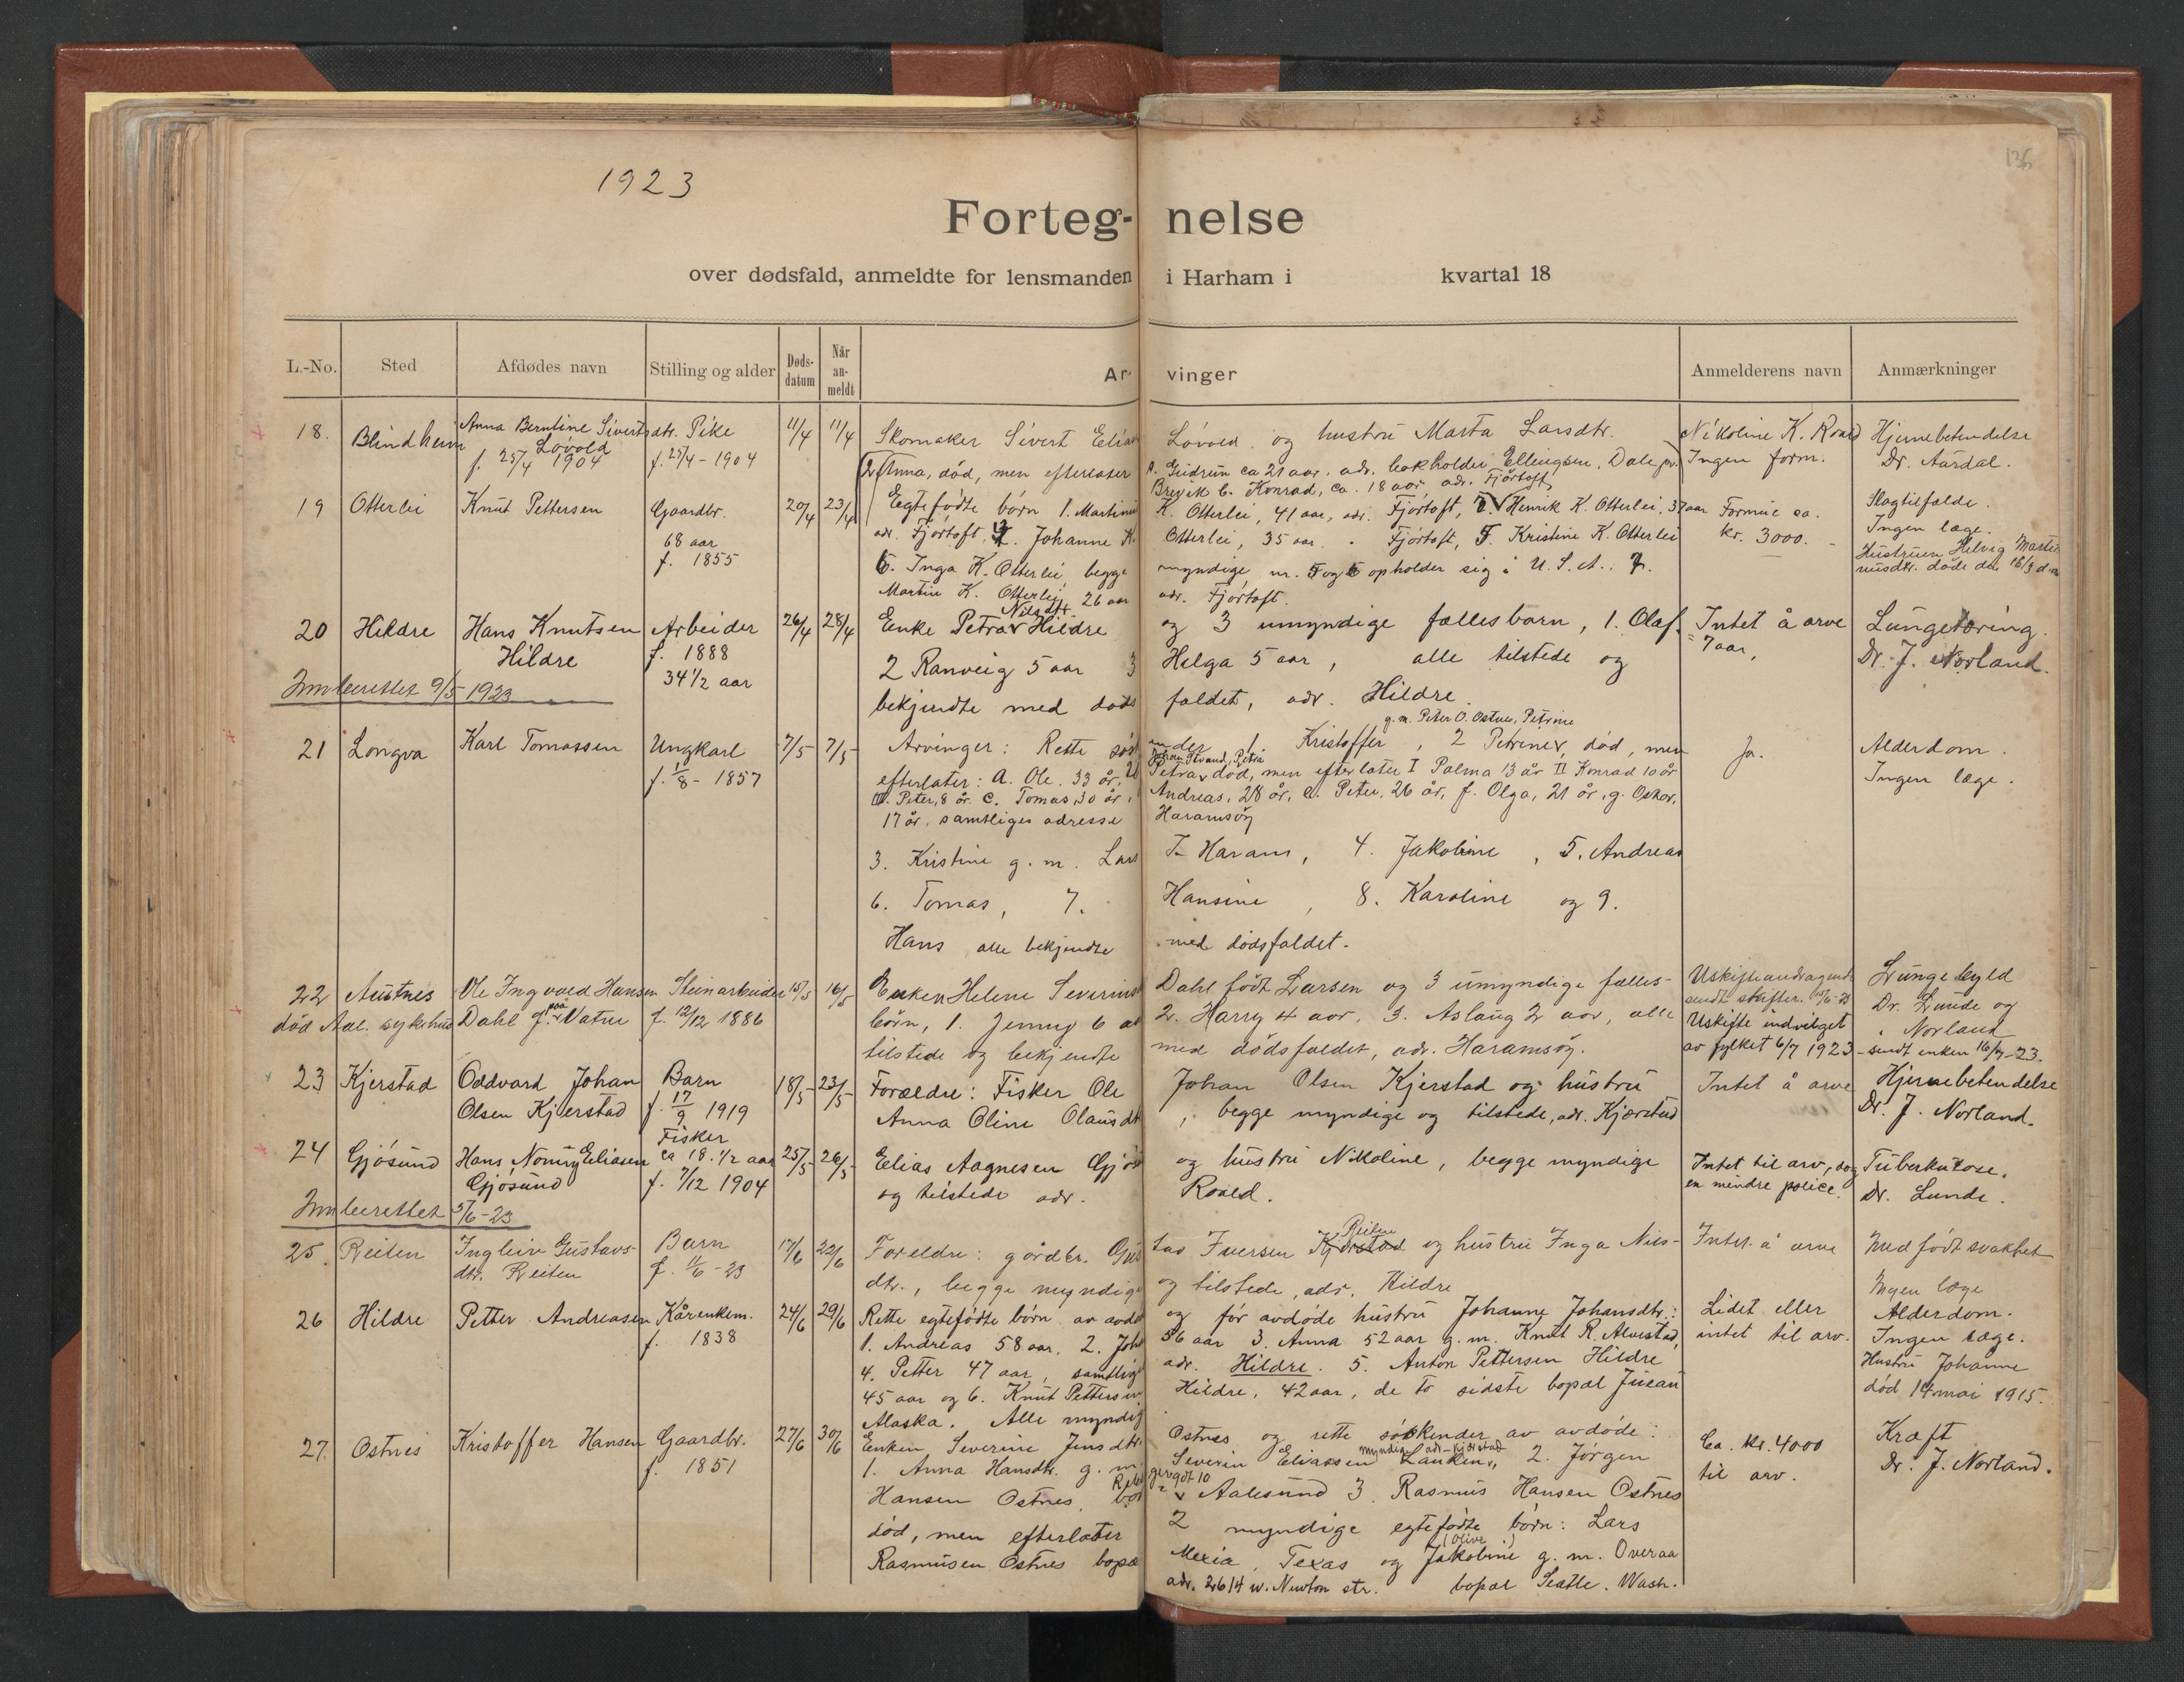 136
1923
Forteg- nelse
over dødsfald, anmeldte for lensmanden i Harham i kvartal 18
L.-No. Sted Afdødes navn Stilling og alder Døds-datum Når an-meldt Ar- vinger Anmelderens navn Anmærkninger
18. Blindheim Anna Berntine Siverts dtr. Pike 11/4 11/4 Skomaker Sivert Elias Løvold og hustru Marta Larsdtr. Nikoline K. Roald Hjernebetendelse
Løvold f. 25/4 1904 f. 25/4 - 1904 Ingen form. Dr. Aardal.
2. Anna, død, men efterlater A. Gudrun ca 21 aar. adr. bokholder Ellingsen, Dale pr.
Brevik b. Konrad, ca. 18 aar adr. Fjørtoft
19 Otterlei Knut Pettersen Gaardbr. 20/4 23/4 Egtefødte børn 1. Martinus K. Otterlei, 41 aar, adr. Fjørtoft, Henrik K. Otterlei, 37 aar Formue ca. Slagtilfælde.
68 aar adr. Fjørtoft, 4. Johanne K. Otterlei, 35 aar. " Fjørtoft, 5. Kristine K. Otterlei kr. 3000. - Ingen læge.
f. 1855 6. Inga K. Otterlei, begge myndige, nr. 5 og 6 opholder sig i U.S.A., 7. Hustruen Helvig Martinusdtr. døde den 16/3 d.a.
Martin K. Otterlei 26 aar adr. Fjørtoft.
20 Hildre Hans Knutsen Arbeider 26/4 28/4 Enke Petra Nilsdtr. Hildre og 3 umyndige fællesbarn, 1. Olaf Intet å arve Lungetæring.
Hildre f. 1888 2 Ranveig 5 aar 3 Helga 5 aar, alle tilstede og 7 aar, Dr. J. Norland.
34 1/2 aar
Innberettet 9/5 1923 bekjendte med døds faldet, adr. Hildre.
g.m. Peter O. Ostnes, Petrine
21 Longva Karl Tomassen Ungkarl 7/5 7/5 Arvinger: Rette søskender 1. Kristoffer, 2 Petrine, død, men Ja. Alderdom.
f. 1/8 - 1857 efterlater: A. Ole. 33 år, Petra død, men efterlater I Palma 13 år II Konrad 10 år Ingen læge.
III. Peter, 8 år C. Tomas, 30 år, Andreas, 28 år, e. Peter, 26 år, f. Olga, 21 år, g. Oskar,
17 år. samtliges adresse Haramsøy
3. Kristine g.m. Lars T. Haram, 4. Jakobine, 5. Andreas
6. Tomas, 7. Hansine, 8. Karoline og 9.
Hans alle bekjendte med dødsfaldet.
22 Austnes Ole Ingvald Hansen Steinarbeider 15/5 16/5 Enken Helene Severine Dahl født Larsen og 3 umyndige fælles- Uskifteandragende Lungebyld
død Aal. sykehus Dahl f. paa Vatne f. 12/12 1886 børn, 1. Jenny 6 aar 2. Harry 4 aar, 3. Aslaug 2 aar, alle sendt skifter. 15/6-23 Dr. Lunde og
tilstede og bekjendte med dødsfaldet, adr. Haramsøy. Uskifte indvilget " Norland
av fylket 6/7 1923 - sendt enken 16/7-23.
23 Kjerstad Oddvard Johan Barn 18/5 23/5 Forældre: Fisker Ole Johan Olsen Kjerstad og hustru Intet å arve Hjernebetendelse
Olsen Kjerstad f. 17/9 1919 Anna Oline Olausdtr, begge myndige og tilstede, adr. Kjærstad Dr. J. Norland.
24 Gjøsund Hans Nonny Eliasen Fisker ca 18 1/2 aar 25/5 26/5 Elias Aagnesen Gjøsund og hustru Nikoline, begge myndige Intet til arv, dog Tuberkulose.
Gjøsund f. 7/12 1904 og tilstede adr. Roald. en mindre police. Dr. Lunde.
Innberettet 5/6-23
25. Reiten Ingleiv Gustavs- Barn 17/6 22/6 Foreldre: gårdbr. Gustav Iversen Kjerstad Reiten og hustru Inga Nils- Intet å arve Medfødt svakhet
dtr. Reiten f. 11/6-23 dtr., begge myndige og tilstede, adr. Hildre Ingen læge
26 Hildre Petter Andreasen Kårenkem. 24/6 29/6 Rette egtefødte børn av avdøde og før avdøde hustru Johanne Johansdtr.: Lidet eller Alderdom.
f. 1838 1. Andreas 58 aar. 2. Joh 56 aar 3. Anna 52 aar g.m. Knut R. Alvestad, intet til arv. Ingen læge.
4. Petter 47 aar, samtlige adr. Hildre. 5. Anton Pettersen Hildre Hustru Johanne
45 aar og 6. Knut Pettersen Hildre, 42 aar, de to sidste bopæl Juneau død 14 mai 1915.
Alaska. Alle myndige.
27. Ostnes Kristoffer Hansen Gaardbr. 27/6 30/6 Enken Severine Jensdtr. Ostnes og rette søskender av avdøde: Ca. Kr. 4000 Kræft
f. 1851 1. Anna Hansdtr. g.m. Severin Eliassen Lauken, myndig adr. Kjerstad 2. Jørgen til arv. Dr. J. Norland.
Hansen Ostnes, bor Aalesund 3. Rasmus Hansen Ostnes
død, men efterlater 2 myndige egtefødte børn: Lars
Rasmusen Ostnes bopæl Mexia, Texas og Jakobine (Olive) g.m. Overaa
adr. 2614 w. Newton str. bopæl Seatle. Wash.